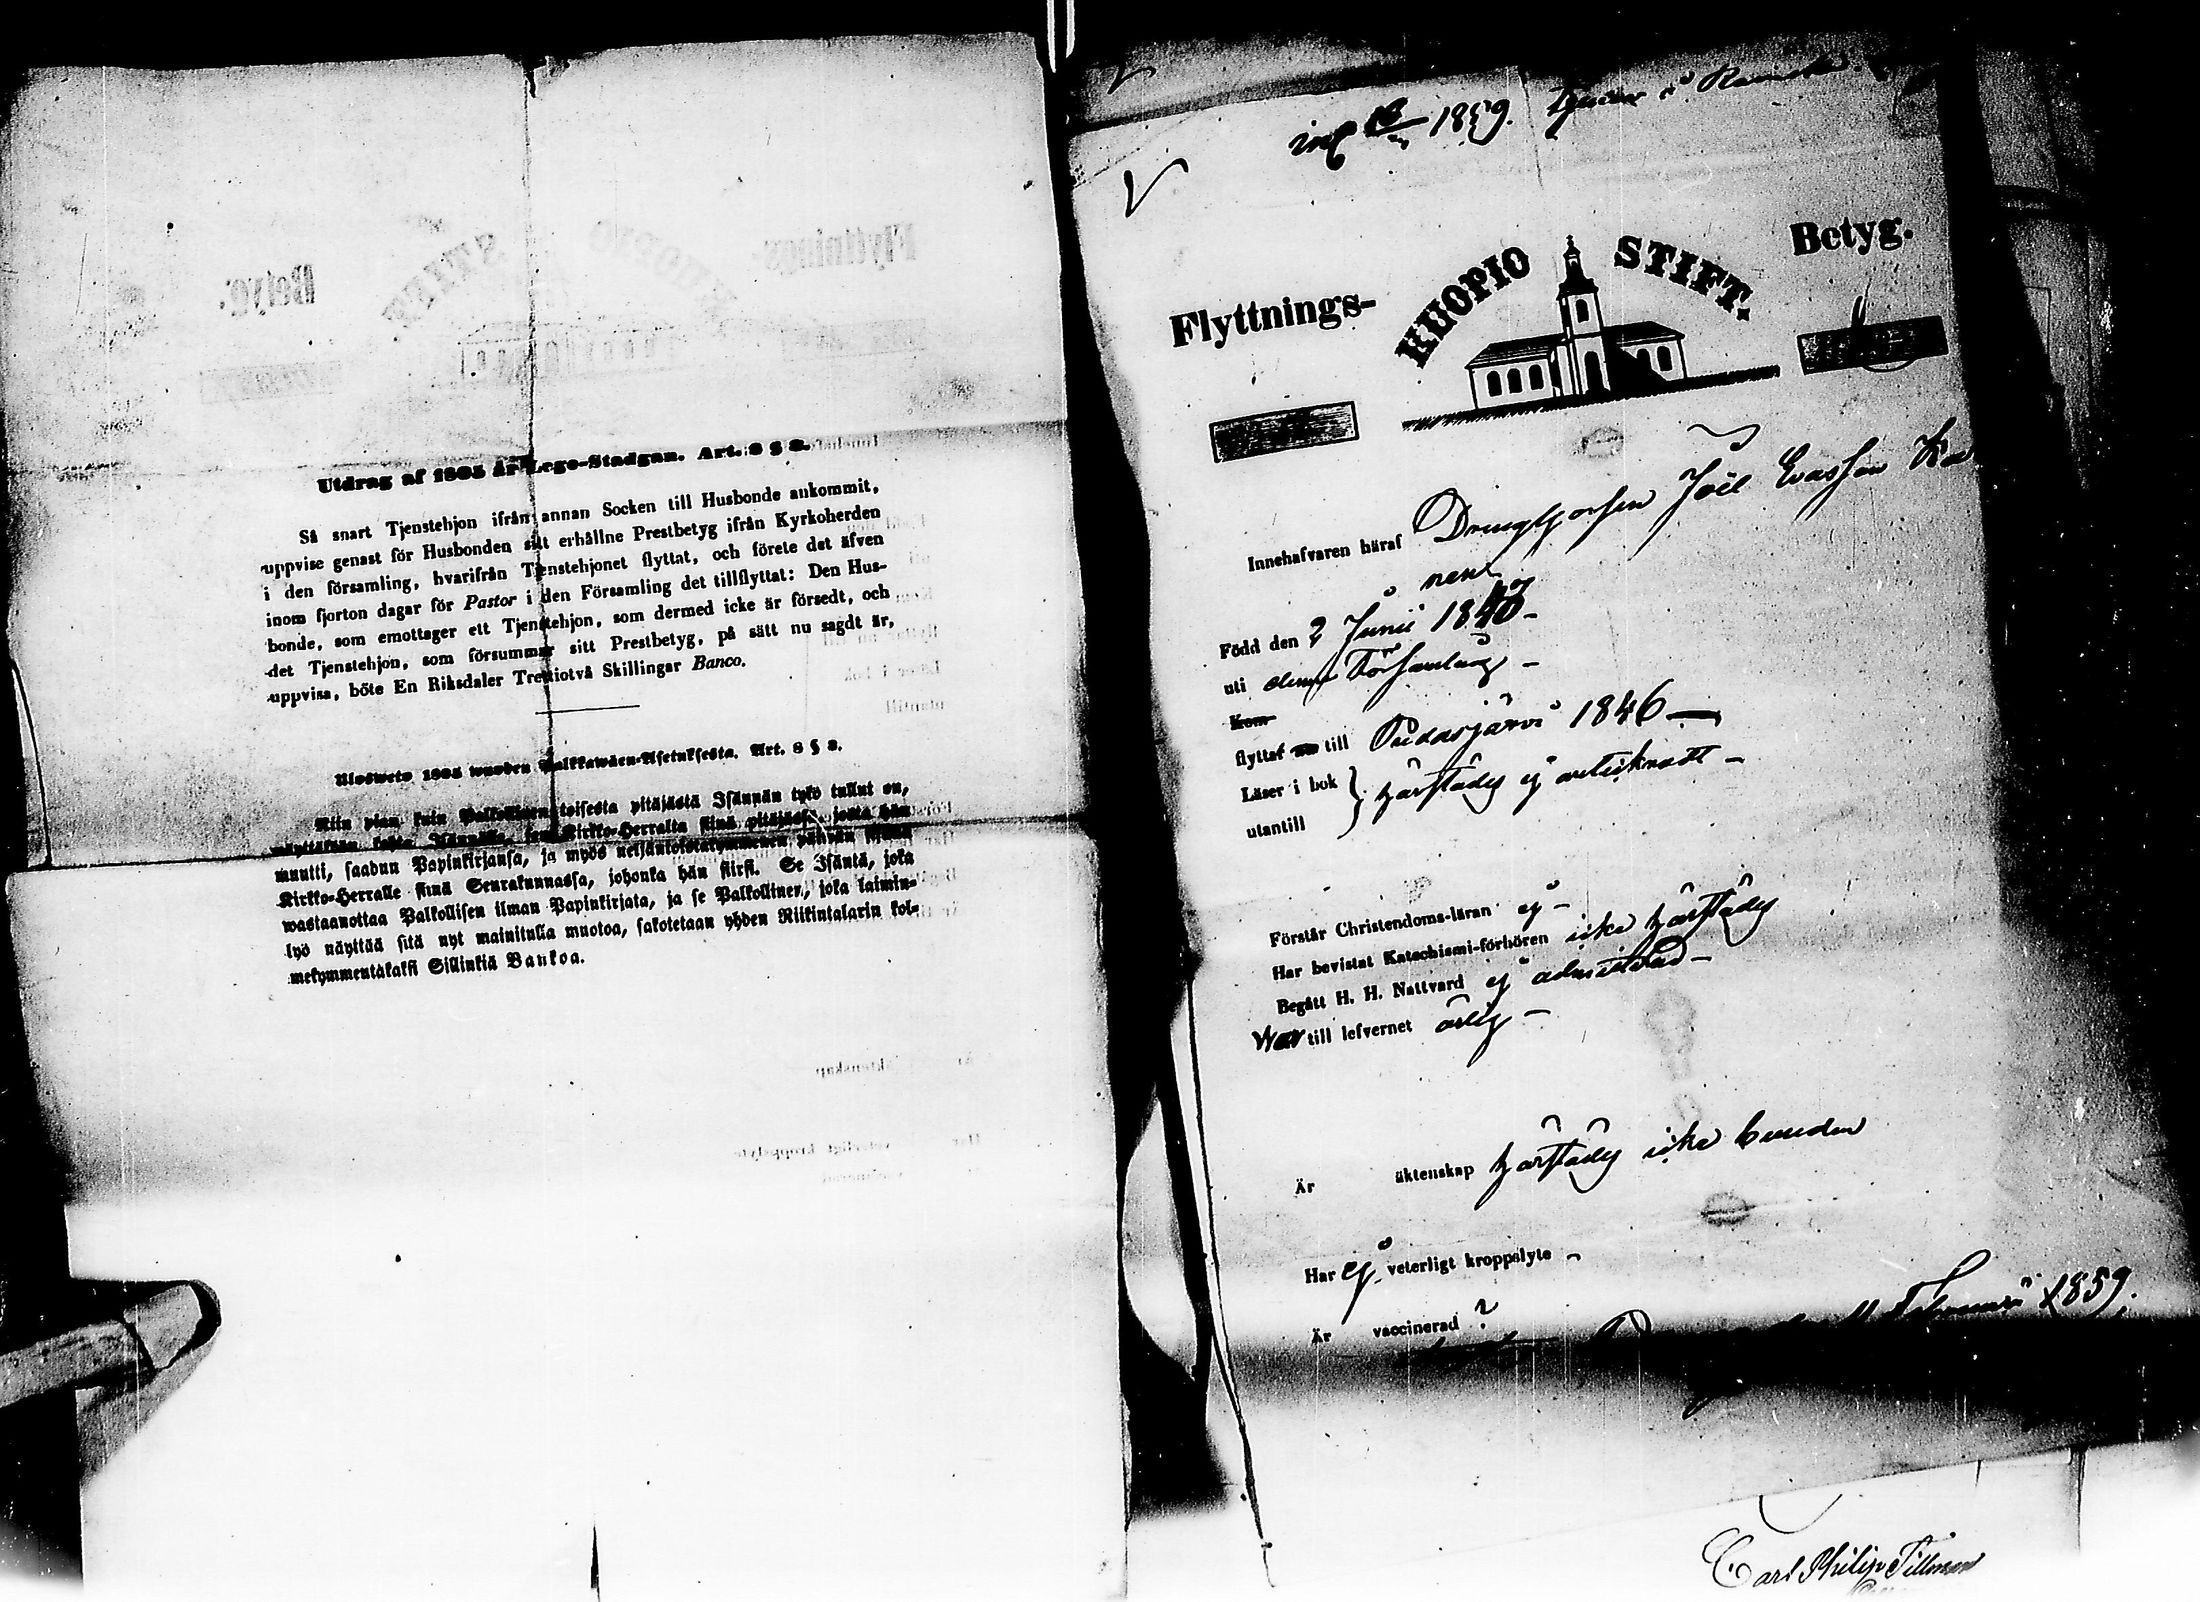 Utdrag af 1805 år Lego-Stadgan. Art. 8 § 2.
Så snart Tjenstehjon ifrån annan Socken till Husbonde ankommit,
uppvise genast för Husbonden sitt erhållne Prestbetyg ifrån Kyrkoherden
i den församling, hvarifrån Tjenstehjonet flyttat, och förete det äfven
inom fjorton dagar för Pastor i den Församling det tillflyttat: Den Hus-
bonde, som emottager ett Tjenstehjon, som dermed icke är försedt, och
det Tjenstehjon, som försummar sitt Prestbetyg, på sätt nu sagdt är,
uppvisa, böte En Riksdaler Trettiotvå Skillingar Banco.
Ulosweto 1805 wuoden Palkkawäen-Asetuksesta. Art. 8 § 2.
Niin pian kuin Palkollinen toisesta pitäjästä Isännän työ tullut on,
Kirkko-Herralta siinä pitäjässä, josta hän
muutti, saadun Papinkirjansa, ja myös neljäntoistakymmenen päiwän
Kirkko-Herralle siinä Seurakunnassa, johonka hän siirsi. Se Isäntä, joka
wastaanottaa Palkollisen ilman Papinkirjata, ja se Palkollinen, joka laimin-
lyö näyttää sitä nyt mainitulla muotoa, sakotetaan yhden Riikintalarin kol-
mekymmentäkaksi Sillinkiä Bankoa.
1859.
Flyttnings- KUOPIO STIFT. Betyg.
Innehafvaren häraf Joel Evasson
Född den 2 Junii 1840
uti denna Församling
Kom
flyttat till Pudasjärvi 1846
Läser i bok
utantill
härstädes ej antecknadt
Förstår Christendoms-läran ej
Har bevistat Katechismi-förhören icke härstädes
Begått H. H. Nattvard ej admitterad
War till lefvernet ärlig
Är äktenskap härstädes icke bunden
Har ej veterligt kroppslyte
Är vaccinerad ?
11 Februarii 1859.
Carl Philip Tillman